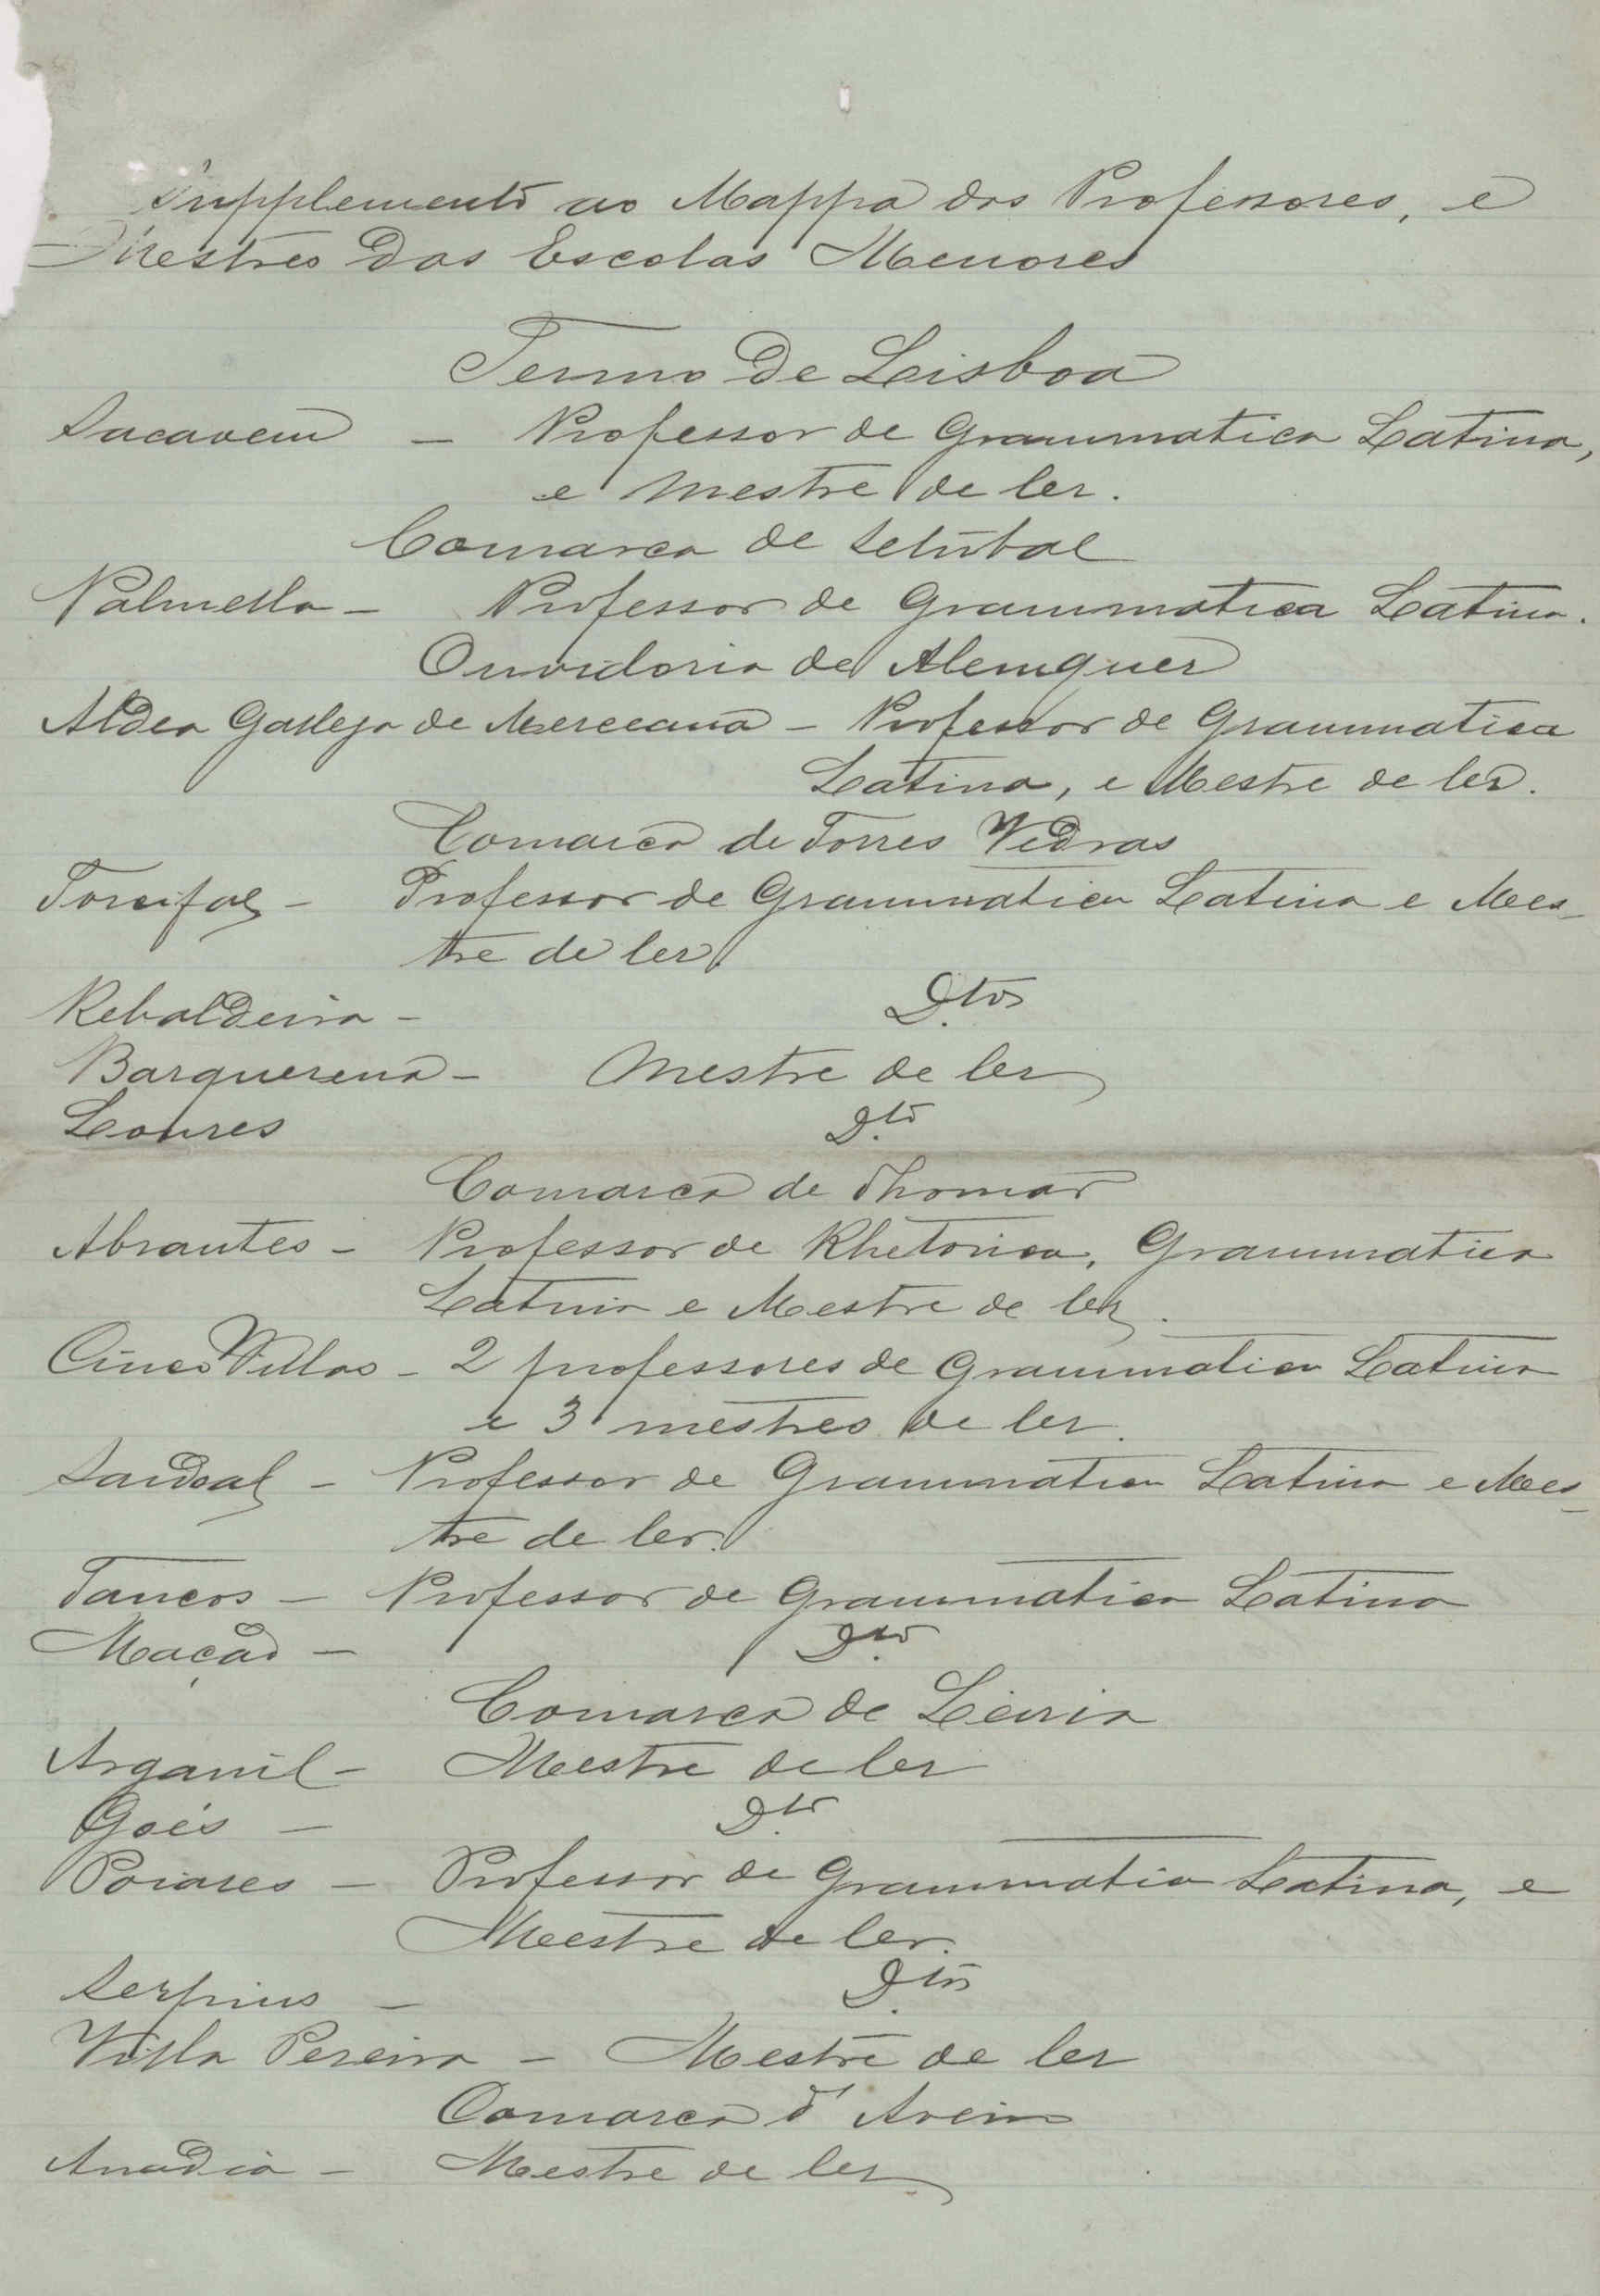 Supplemento ao Mappa dos Professores, e
Mestres dos Escolas Menores
Termo de Lisboa
Sacavem — Professor de Grammatica Latina,
e Mestre de ler.
Comarca de Setubal
Palmella — Professor de Grammatica Latina.
Ouvidoria de Alemquer
Aldea Gallega de Merceana — Professor de Grammatica
Latina, e Mestre de ler.
Comarca de Torres Vedras
Torcifal — Professor de Grammatica Latina e Mes-
tre de ler.
Rebaldeira — D.tos
Barquerena — Mestre de ler
Loures D.to
Comarca de Thomar
Abrantes — Professor de Rhetorica, Grammatica
Latina e Mestre de ler.
Cinco Villas — 2 professores de Grammatica Latina
e 3 mestres de ler.
Sardoal — Professor de Grammatica Latina e Mes-
tre de ler.
Tancos — Professor de Grammatica Latina
Mação — D.to
Comarca de Leiria
Arganil — Mestre de ler
Goes — D.to
Poiares — Professor de Grammatica Latina, e
Mestre de ler.
Serpins — D.tos
Villa Pereira — Mestre de ler
Comarca d'Aveiro
Anadia — Mestre de ler